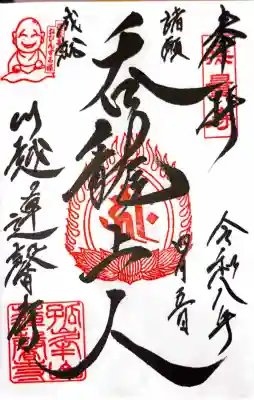 奉拝
令和八年
四月五日
諸願
成就
呑龍上人
川越 蓮馨寺
おびんずる様